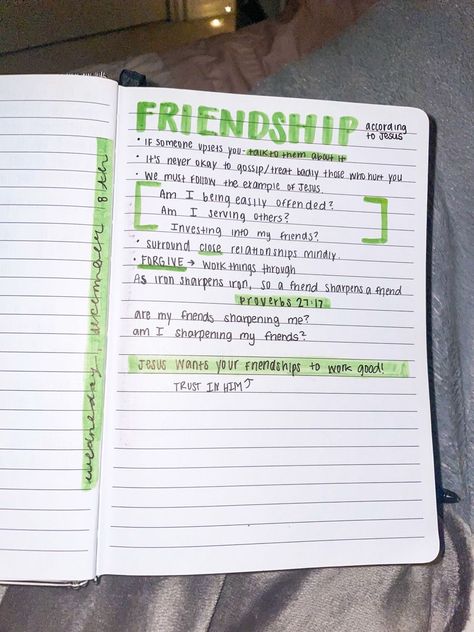 wednesday, december 8th
FRIENDSHIP according to Jesus
• If someone upsets you - talk to them about it
• It's never okay to gossip/treat badly those who hurt you
• We must follow the example of Jesus.
Am I being easily offended?
Am I serving others?
Investing into my friends?
• Surround close relationships mindly.
• FORGIVE → work things through
As iron sharpens iron, so a friend sharpens a friend
Proverbs 27:17
are my friends sharpening me?
am I sharpening my friends?
Jesus wants your friendships to work good!
TRUST IN HIM